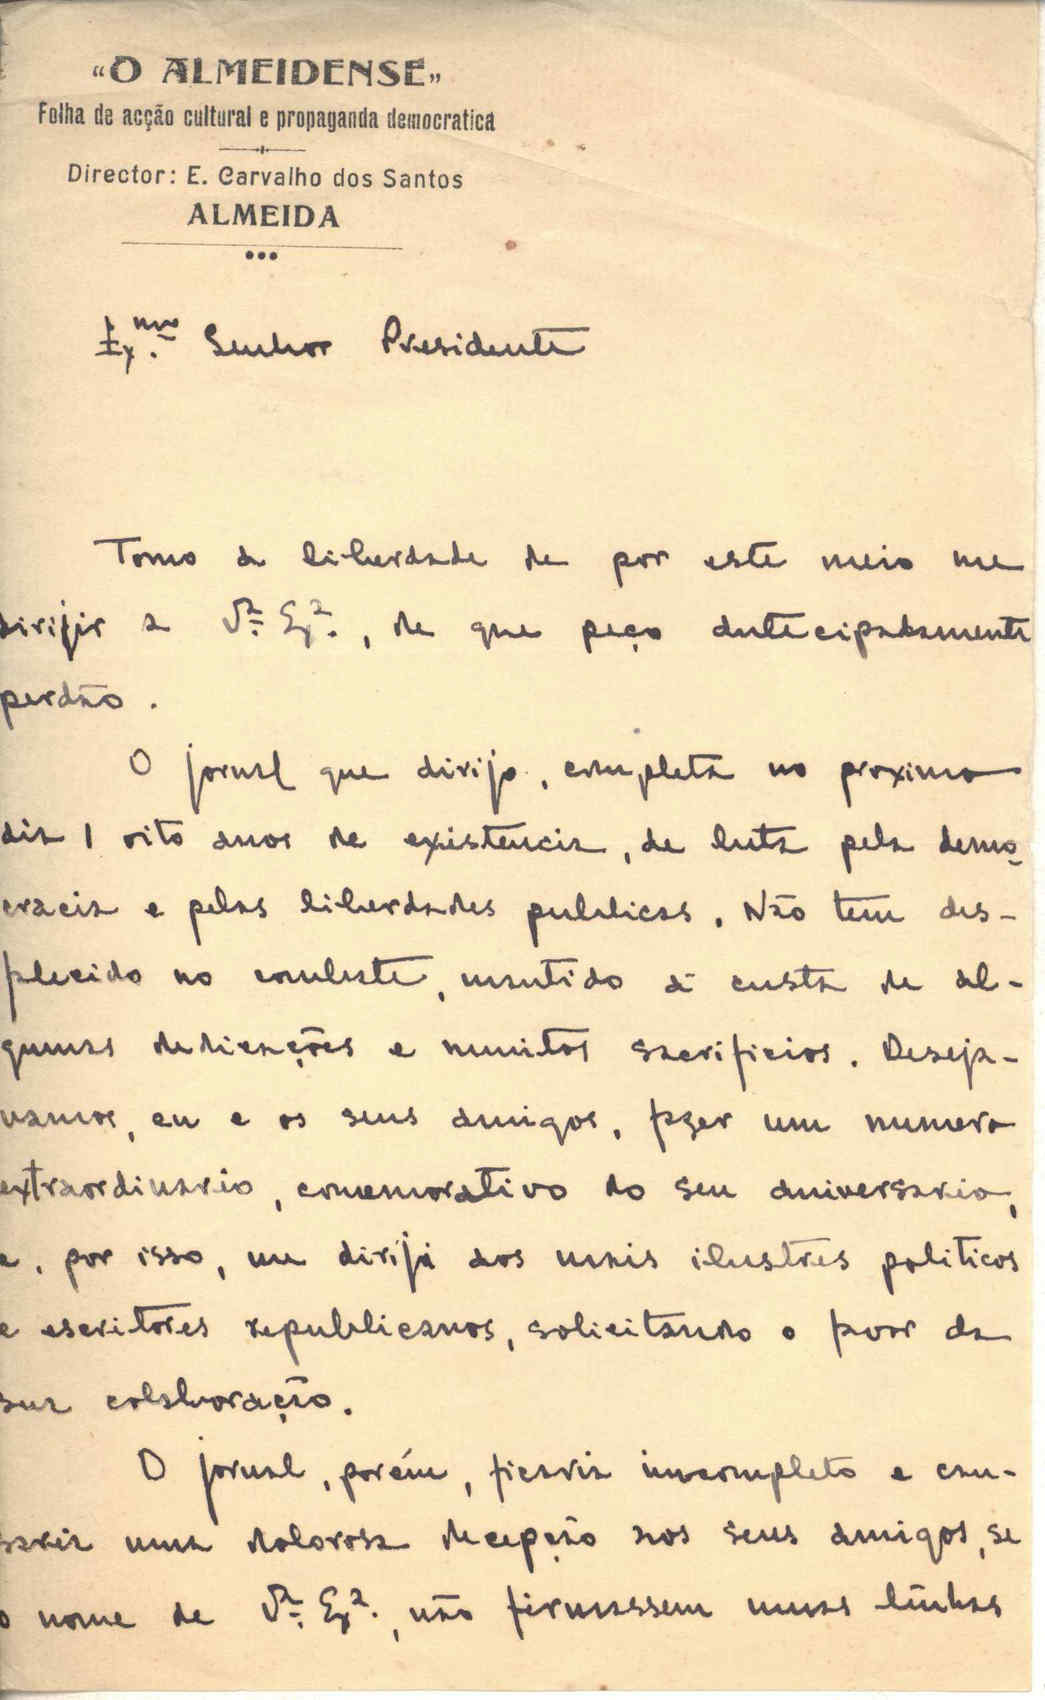 «O ALMEIDENSE»
Folha de acção cultural e propaganda democratica
Director: E. Carvalho dos Santos
ALMEIDA
Ex.mo Senhor Presidente
Tomo a liberdade de por este meio me
dirijir a V.ª Ex.ª, de que peço antecipadamente
perdão.
O jornal que dirijo, completa no proximo
dia 1 oito anos de existencia, de luta pela demo-
cracia e pelas liberdades publicas. Não tem des-
falecido no combate, mantido á custa de al-
gumas dedicações e muitos sacrificios. Deseja-
vamos, eu e os seus amigos, fazer um numero
extraordinario, comemorativo do seu aniversario,
e, por isso, me diriji aos mais ilustres politicos
e escritores republicanos, solicitando o favor da
sua colaboração.
O jornal, porém, ficaria incompleto e cau-
saria uma dolorosa decepção aos seus amigos, se
o nome de V.ª Ex.ª, não firmassem umas linhas